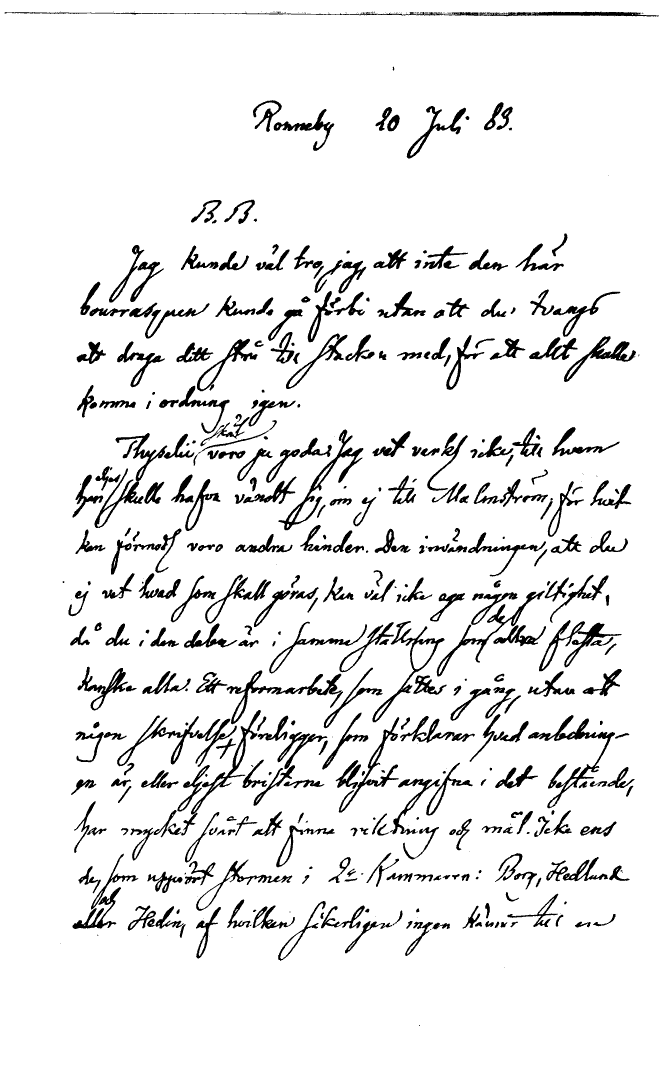 Ronneby 20 Juli 83.
B. B.
Jag kunde väl tro, jag, att inte den här
bourrasquen kunde gå förbi utan att du tvangs
att draga ditt strå till stacken med, för att allt skulle
komma i ordning igen.
Thyselii skäl voro ju goda: Jag vet verkl icke, till hvem
han eljes skulle hafva vändt sig, om ej till Malmström, för hvil-
ken förmodl voro andra hinder. Den invändningen, att du
ej vet hvad som skall göras, kan väl icke ega någon giltighet,
då du i den delen är i samma ställning som de flesta,
kanske alla. Ett reformarbete, som sättes i gång, utan att
någon skrifvelse föreligger, som förklarar hvad anledning-
en är, eller eljest bristerna blifvit angifna i det bestående,
har mycket svårt att finna riktning och mål. Icke ens
de, som uppväckt stormen i 2a Kammaren: Borg, Hedlund
och Hedin, af hvilken säkerligen ingen känner till en